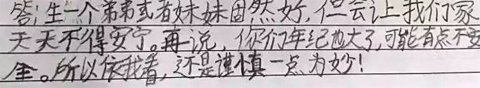 答:生一个弟弟或者妹妹固然好,但会让我们家
天天不得安宁。再说,你们年纪也大了,可能有点不安
全。所以依我看,还是谨慎一点为妙!